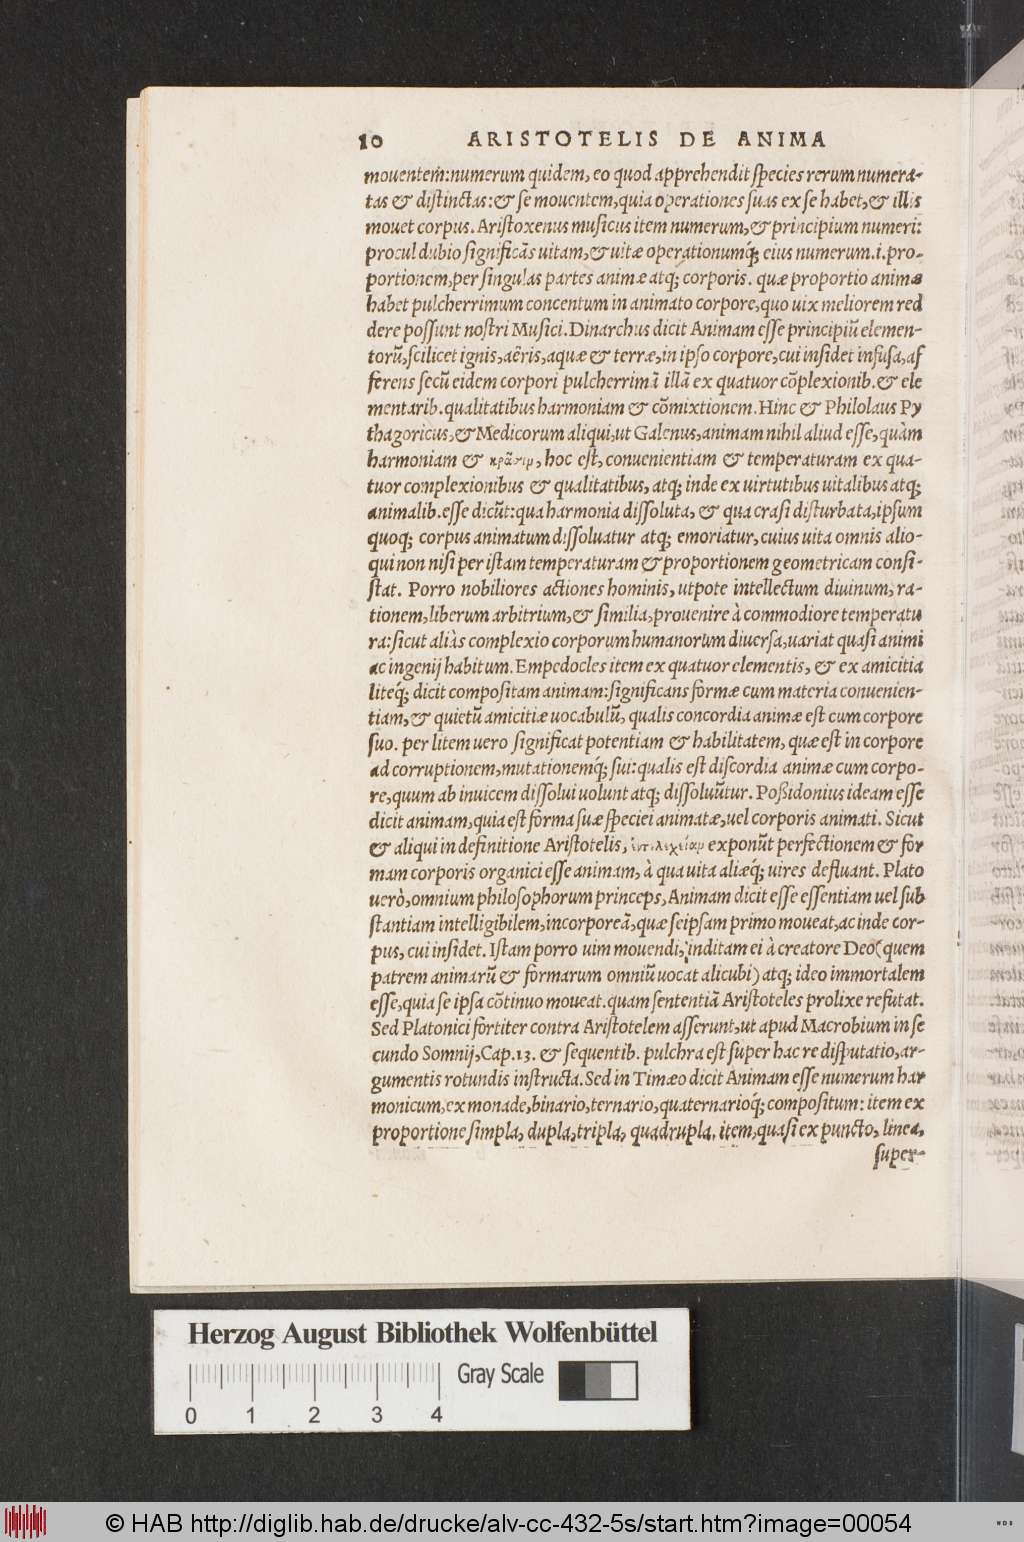 10 ARISTOTELIS DE ANIMA
mouentem:numerum quidem, eo quod apprehendit species rerum numera-
tas & distinctas:& se mouentem,quia operationes suas ex se habet,& illis
mouet corpus. Aristoxenus musicus item numerum,& principium numeri:
procul dubio significãs uitam,& uitæ operationumq́; eius numerum.i.pro-
portionem,per singulas partes animæ atq; corporis. quæ proportio animæ
habet pulcherrimum concentum in animato corpore,quo uix meliorem red
dere possunt nostri Musici.Dinarchus dicit Animam esse principiũ elemen-
torũ,scilicet ignis,aëris,aquæ & terræ,in ipso corpore,cui insidet infusa,af
ferens secũ eidem corpori pulcherrimã illã ex quatuor cõplexionib.& ele
mentarib.qualitatibus harmoniam & cõmixtionem.Hinc & Philolaus Py
thagoricus,& Medicorum aliqui,ut Galenus,animam nihil aliud esse,quàm
harmoniam & κρᾶσιμ, hoc est, conuenientiam & temperaturam ex qua-
tuor complexionibus & qualitatibus, atq; inde ex uirtutibus uitalibus atq;
animalib.esse dicũt:qua harmonia dissoluta, & qua crasi disturbata,ipsum
quoq; corpus animatum dissoluatur atq; emoriatur,cuius uita omnis alio-
qui non nisi per istam temperaturam & proportionem geometricam consi-
stat. Porro nobiliores actiones hominis, utpote intellectum diuinum, ra-
tionem,liberum arbitrium,& similia,prouenire à commodiore temperatu
ra:sicut aliàs complexio corporum humanorum diuersa,uariat quasi animi
ac ingenij habitum.Empedocles item ex quatuor elementis, & ex amicitia
liteq́; dicit compositam animam:significans formæ cum materia conuenien-
tiam,& quietũ amicitiæ uocabulũ, qualis concordia animæ est cum corpore
suo. per litem uero significat potentiam & habilitatem, quæ est in corpore
ad corruptionem,mutationemq́; sui:qualis est discordia animæ cum corpo-
re,quum ab inuicem dissolui uolunt atq; dissoluũtur. Possidonius ideam esse
dicit animam,quia est forma suæ speciei animatæ,uel corporis animati. Sicut
& aliqui in definitione Aristotelis, ἐντελεχείαμ exponũt perfectionem & for
mam corporis organici esse animam, à qua uita aliæq́; uires defluant. Plato
uerò,omnium philosophorum princeps,Animam dicit esse essentiam uel sub
stantiam intelligibilem,incorporeã,quæ seipsam primo moueat,ac inde cor-
pus, cui insidet. Istam porro uim mouendi, inditam ei à creatore Deo (quem
patrem animarũ & formarum omniũ uocat alicubi) atq; ideo immortalem
esse,quia se ipsa cõtinuo moueat.quam sententiã Aristoteles prolixe refutat.
Sed Platonici fortiter contra Aristotelem asserunt,ut apud Macrobium in se
cundo Somnij,Cap.13. & sequentib. pulchra est super hac re disputatio,ar-
gumentis rotundis instructa.Sed in Timæo dicit Animam esse numerum har
monicum,ex monade,binario,ternario,quaternarioq́; compositum: item ex
proportione simpla, dupla,tripla, quadrupla. item,quasi ex puncto, linea,
super-
Herzog August Bibliothek Wolfenbüttel
Gray Scale
0 1 2 3 4
© HAB http://diglib.hab.de/drucke/alv-cc-432-5s/start.htm?image=00054